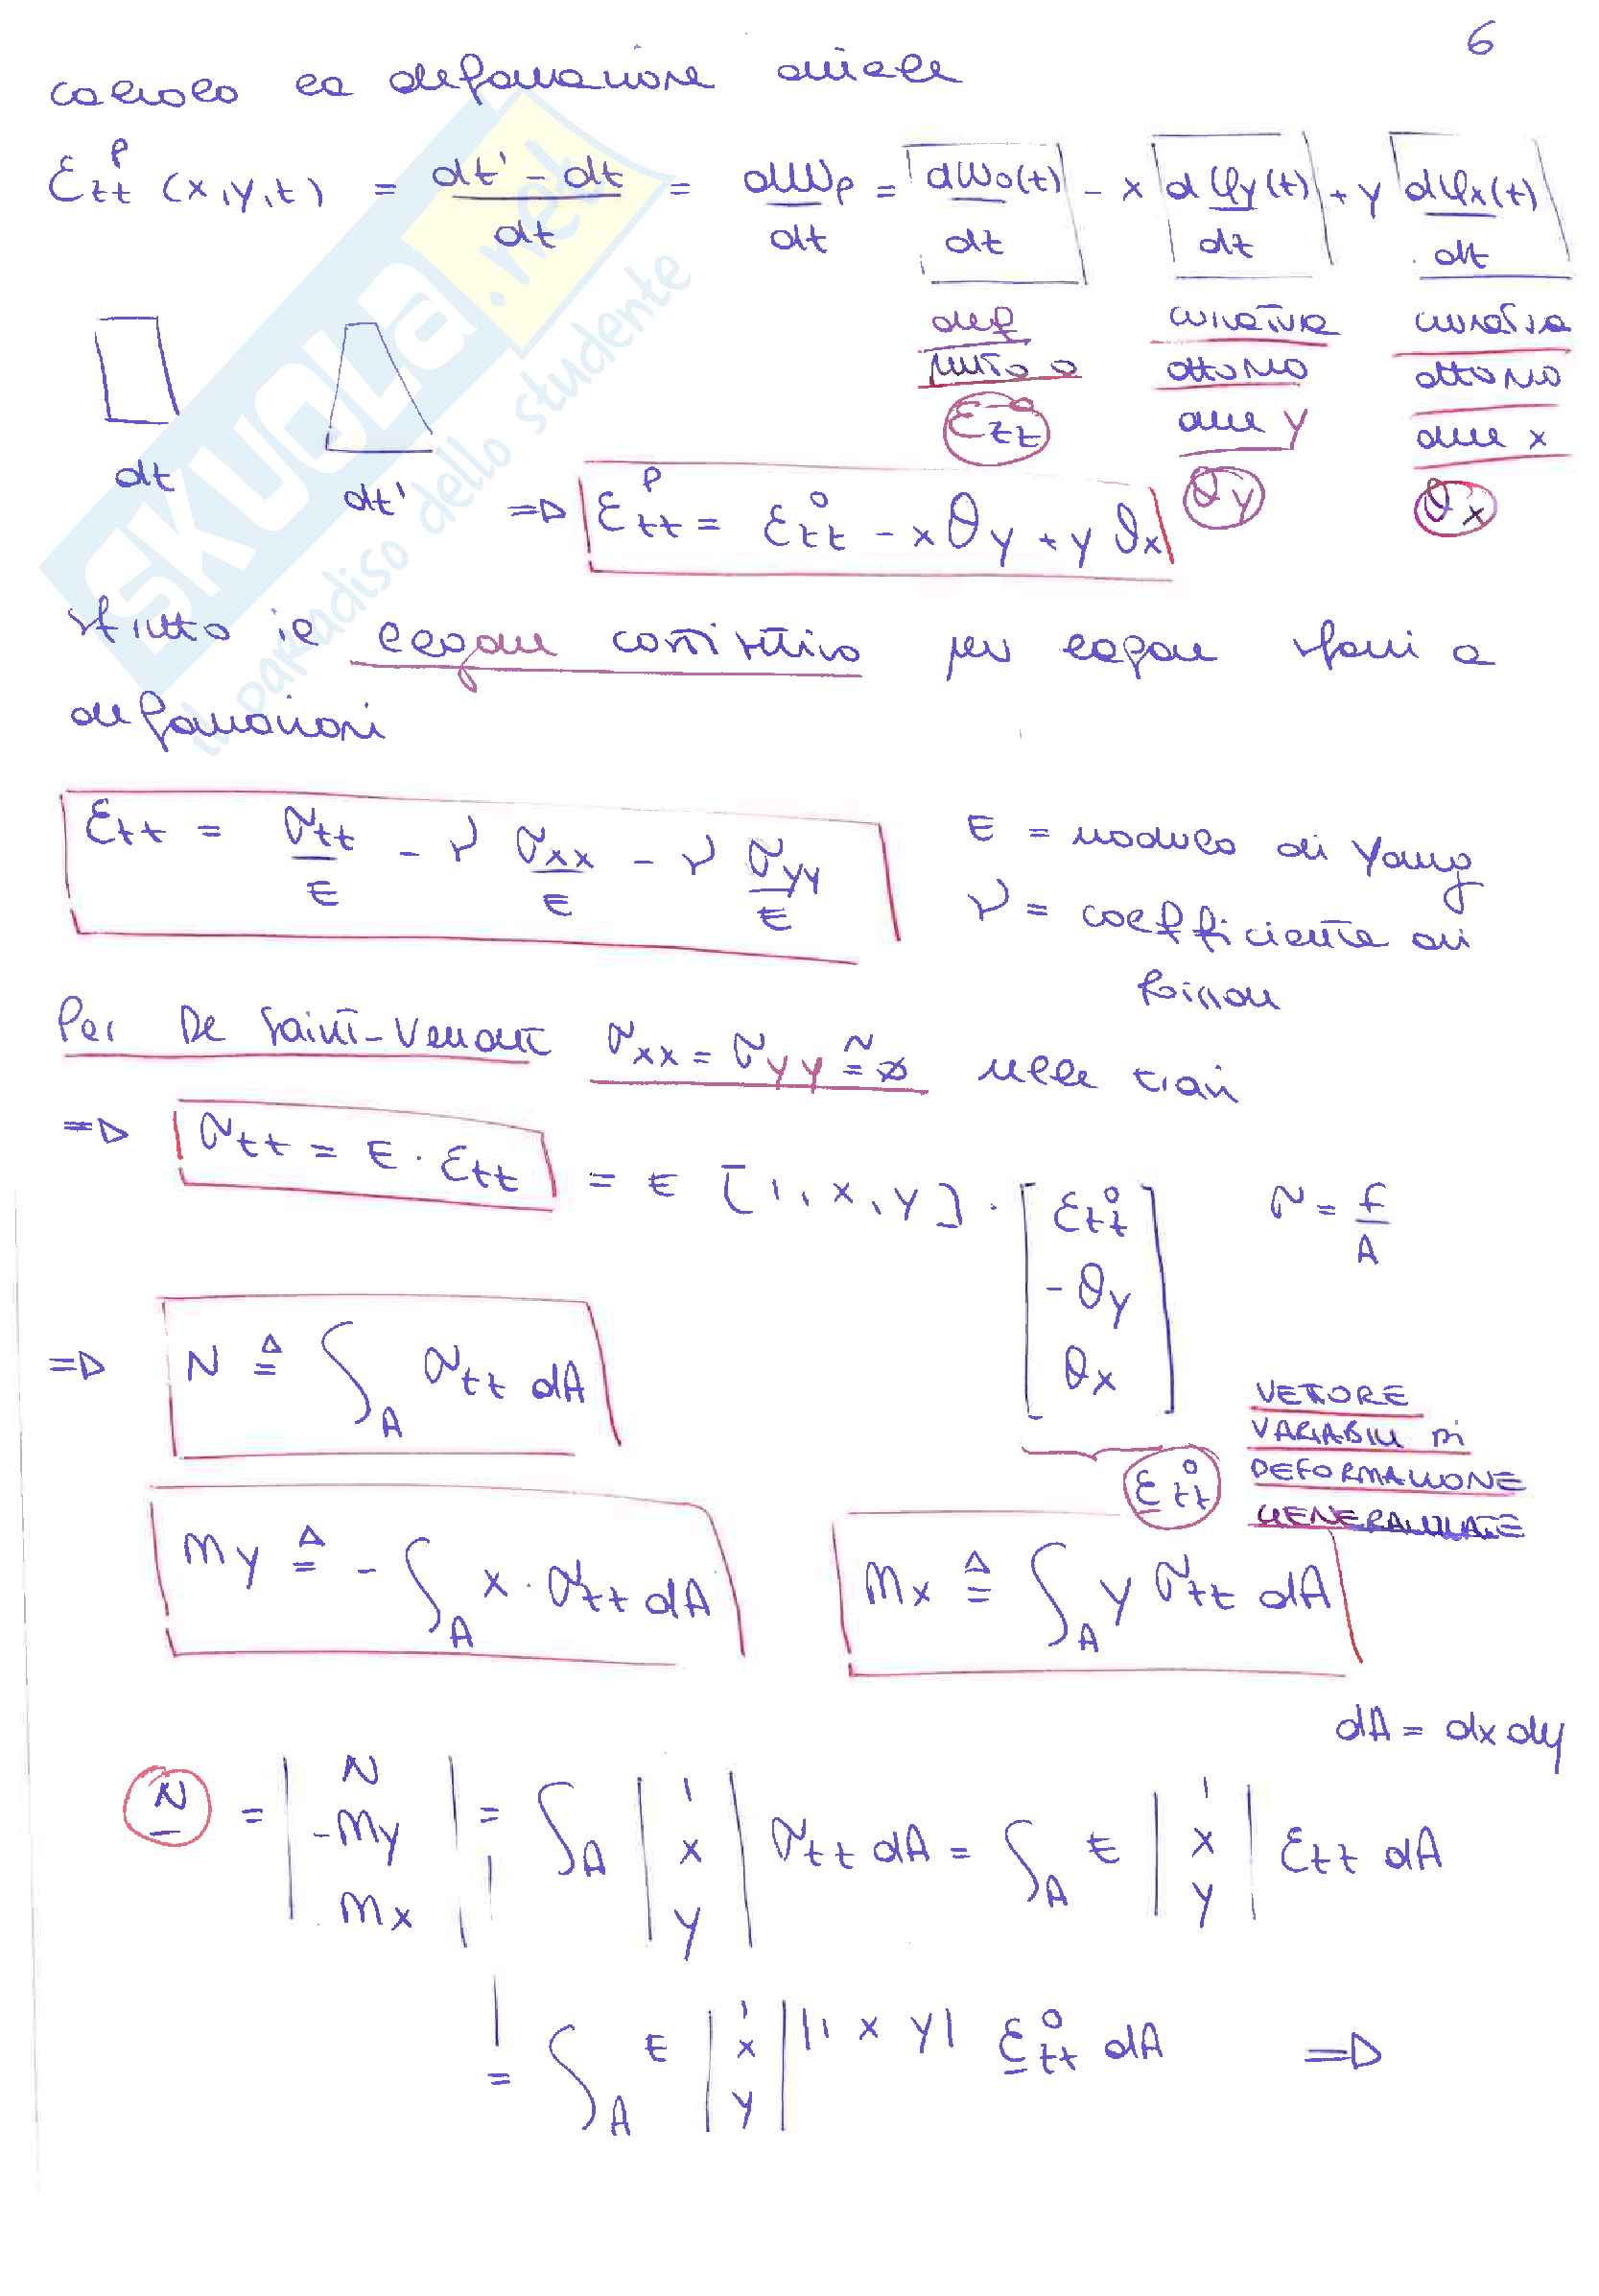 6
calcolo la deformazione assiale
εttᵖ (x,y,t) = dt' - dt / dt = dwp / dt = dwo(t) / dt - x dφy(t) / dt + y dφx(t) / dt
def curvatura curvatura
punto o attorno attorno
asse y asse x
εtt° θy θx
dt dt' => εttᵖ = εtt° - xθy + yθx
sfrutto il legame costitutivo per legare sforzi a
deformazioni
εtt = σtt / E - ν σxx / E - ν σyy / E
E = modulo di Yong
ν = coefficiente di
Poisson
Per De Saint-Venant σxx = σyy ≅ ø nelle travi
=> σtt = E · εtt = E [1, x, y] · [εtt° -θy θx] σ = f / A
εtt°
VETTORE
VARIABILI DI
DEFORMAZIONE
GENERALIZZATE
=> N ≜ ∫A σtt dA
My ≜ - ∫A x · σtt dA Mx ≜ ∫A y σtt dA
dA = dx dy
N = | N -My Mx | = ∫A | 1 x y | σtt dA = ∫A E | 1 x y | εtt dA
= ∫A E | 1 x y | |1 x y| εtt° dA =>
SKUOLA.net
il paradiso dello studente